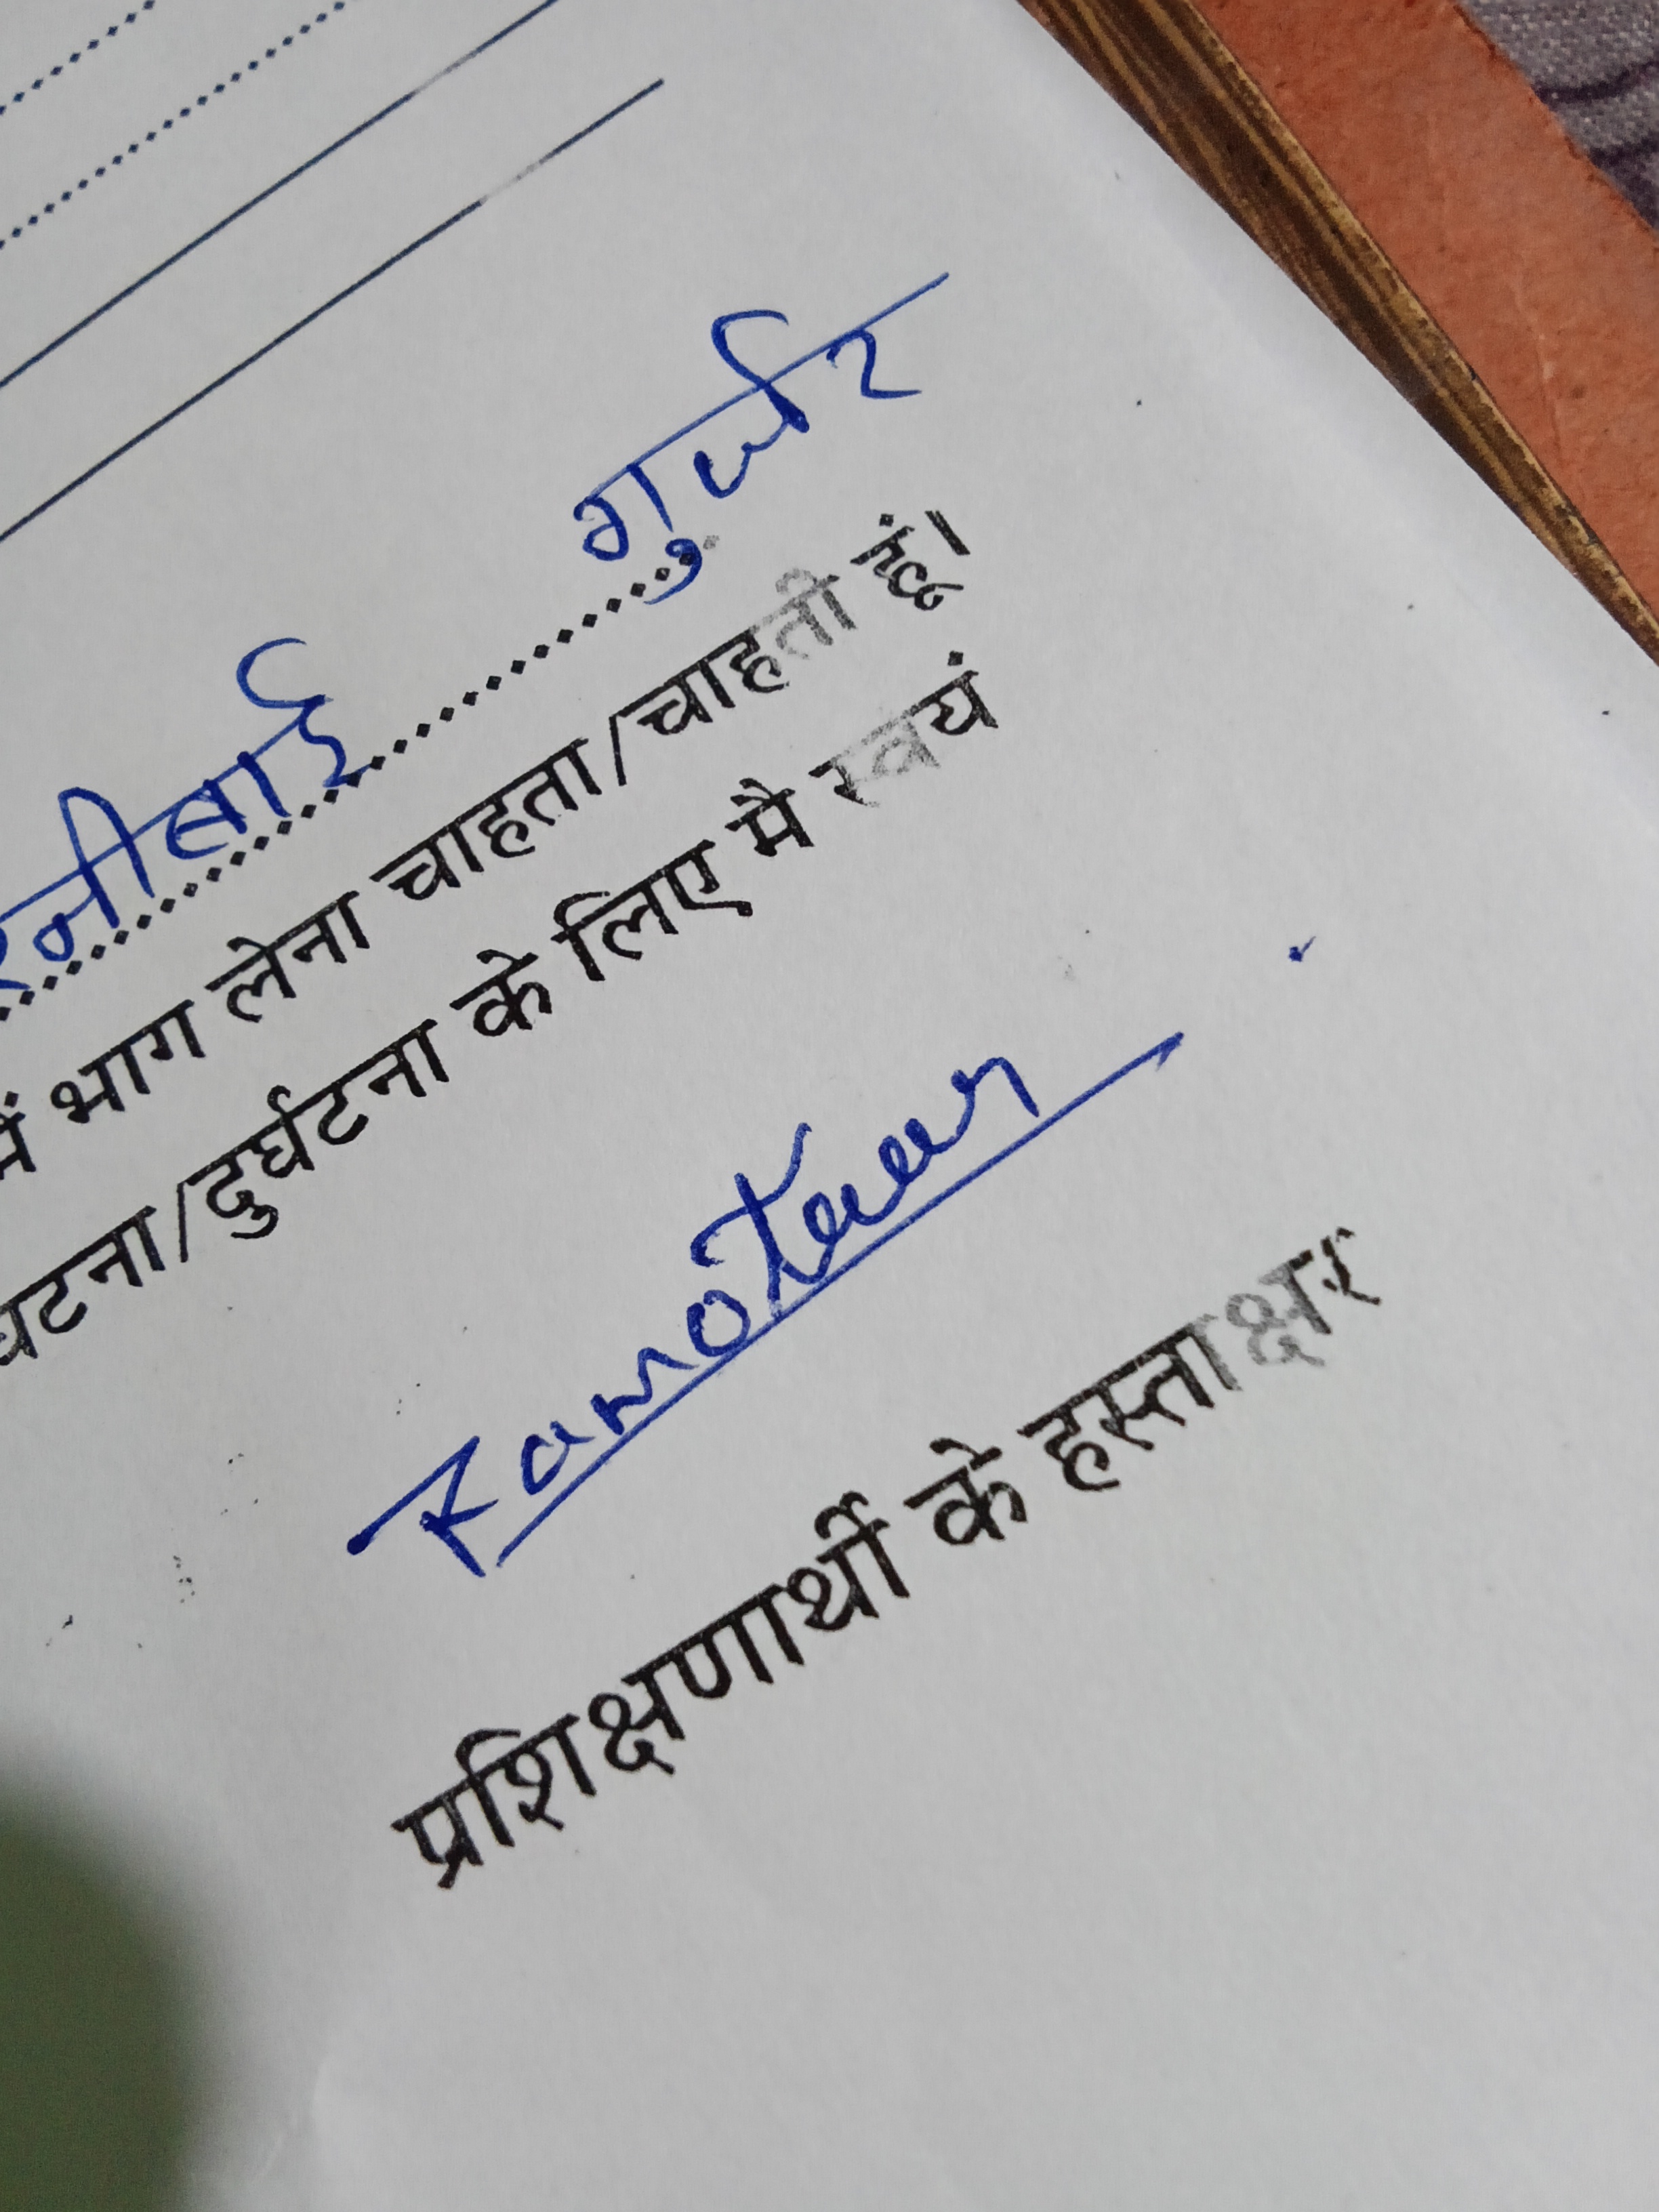 रनीबाई गुर्जर
में भाग लेना चाहता/चाहती हूं।
घटना/दुर्घटना के लिए मै स्वयं
Ramotaar
प्रशिक्षणार्थी के हस्ताक्षर